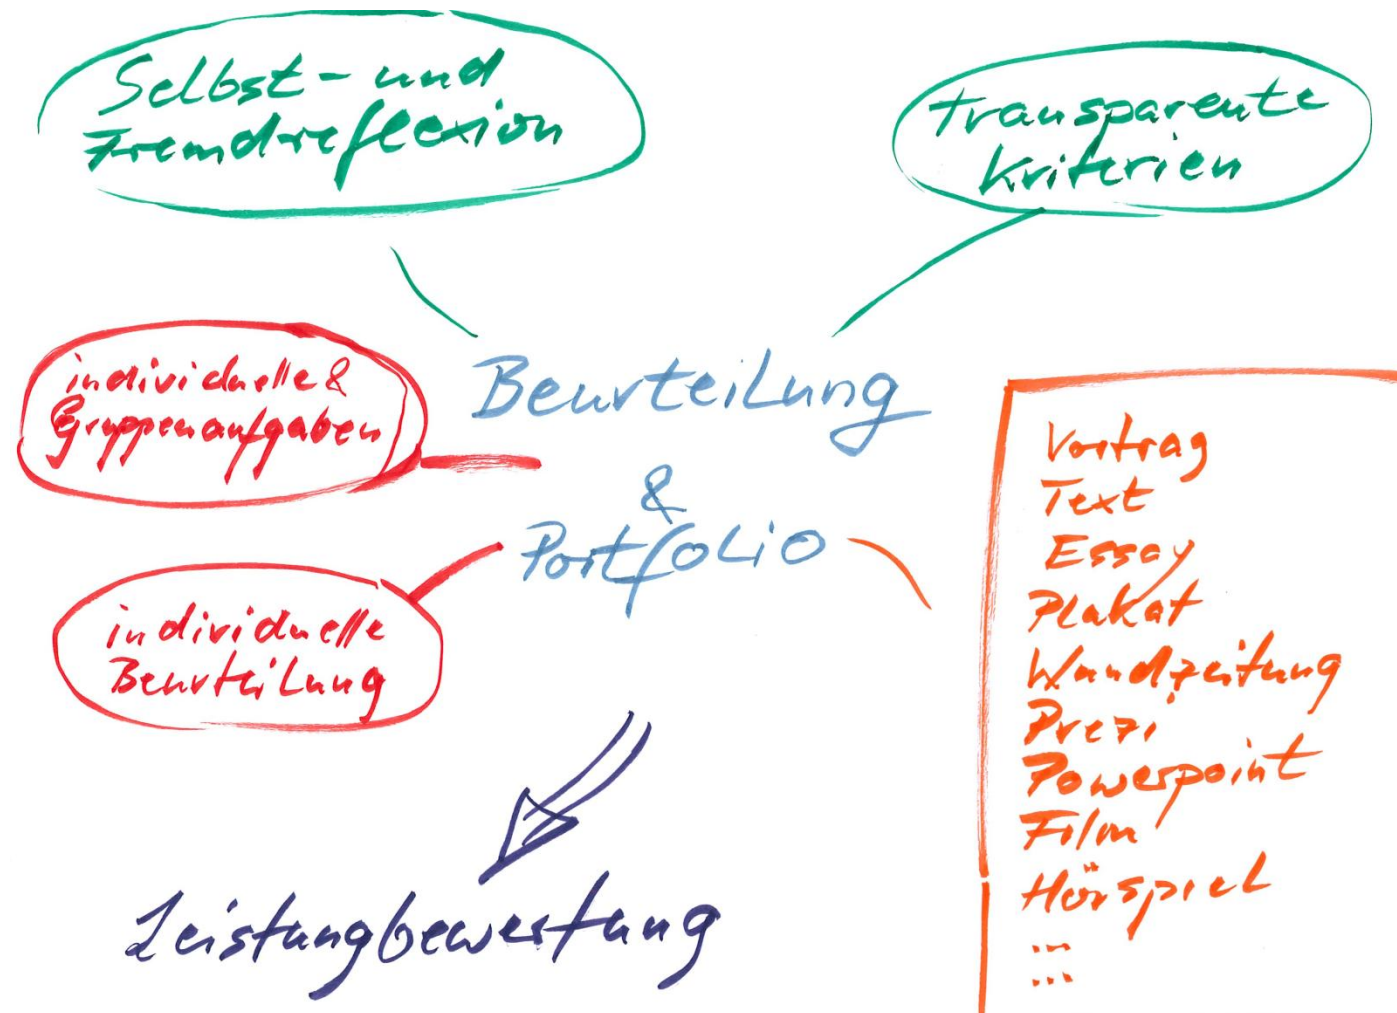 Selbst- und
Fremdreflexion
Transparente
Kriterien
individuelle &
Gruppenaufgaben
Beurteilung
&
Portfolio
individuelle
Beurteilung
Vortrag
Text
Essay
Plakat
Wandzeitung
Prezi
Powerpoint
Film
Hörspiel
...
...
Leistungbewertung